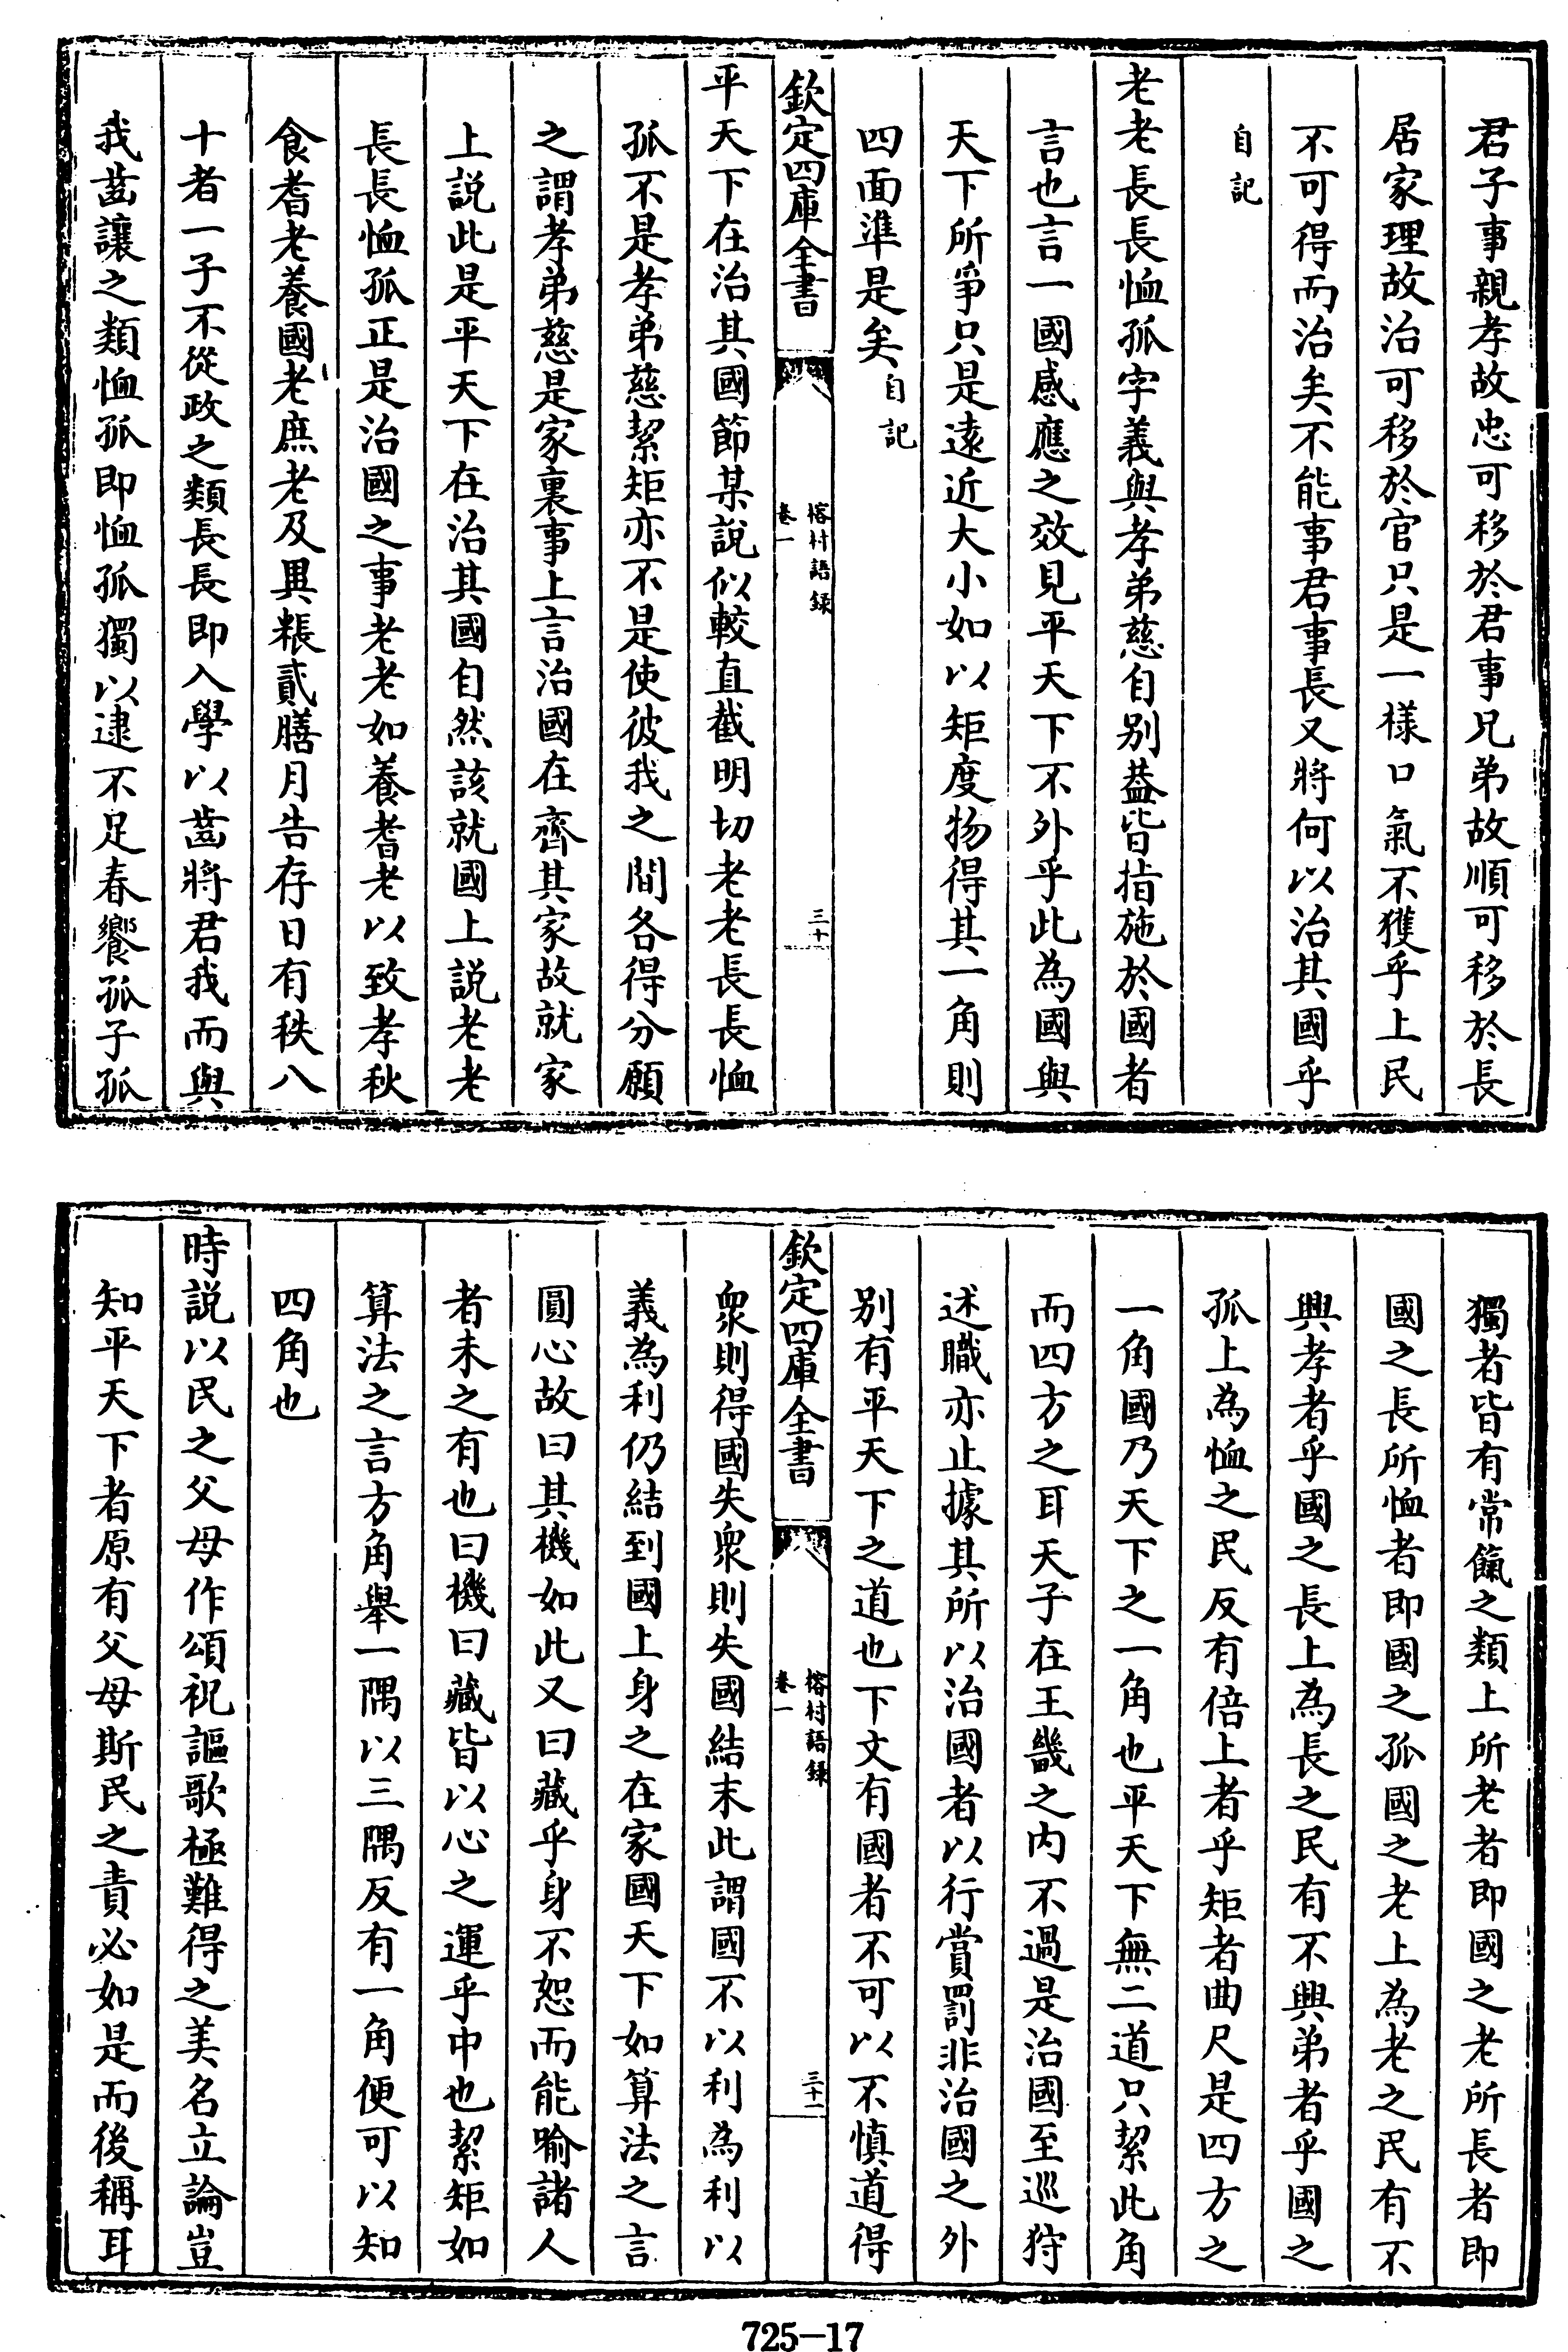 君子事親孝故忠可移於君事兄弟故順可移於長
居家理故治可移於官只是一樣口氣不獲乎上民
不可得而治矣不能事君事長又將何以治其國乎
自記
老老長長恤孤字義與孝弟慈自别葢皆指施於國者
言也言一國感應之效見平天下不外乎此為國與
天下所爭只是遠近大小如以矩度物得其一角則
四面準是矣自記
欽定四庫全書
榕村語録
卷一
三十
平天下在治其國節某說似較直截明切老老長長恤
孤不是孝弟慈絜矩亦不是使彼我之間各得分願
之謂孝弟慈是家裏事上言治國在齊其家故就家
上説此是平天下在治其國自然該就國上説老老
長長恤孤正是治國之事老老如養耆老以致孝秋
食耆老養國老庶老及異粻貳膳月告存日有秩八
十者一子不從政之類長長即入學以齒將君我而與
我齒讓之類恤孤即恤孤獨以逮不足春饗孤子孤
獨者皆有常餼之類上所老者即國之老所長者即
國之長所恤者即國之孤國之老上為老之民有不
興孝者乎國之長上為長之民有不興弟者乎國之
孤上為恤之民反有倍上者乎矩者曲尺是四方之
一角國乃天下之一角也平天下無二道只絜此角
而四方之耳天子在王畿之内不過是治國至巡狩
述職亦止據其所以治國者以行賞罰非治國之外
别有平天下之道也下文有國者不可以不慎道得
欽定四庫全書
榕村語録
卷一
三十一
衆則得國失衆則失國結末此謂國不以利為利以
義為利仍結到國上身之在家國天下如算法之言
圓心故曰其機如此又曰藏乎身不恕而能喻諸人
者未之有也曰機曰藏皆以心之運乎中也絜矩如
算法之言方角舉一隅以三隅反有一角便可以知
四角也
時説以民之父母作頌祝謳歌極難得之美名立論豈
知平天下者原有父母斯民之責必如是而後稱耳
725-17